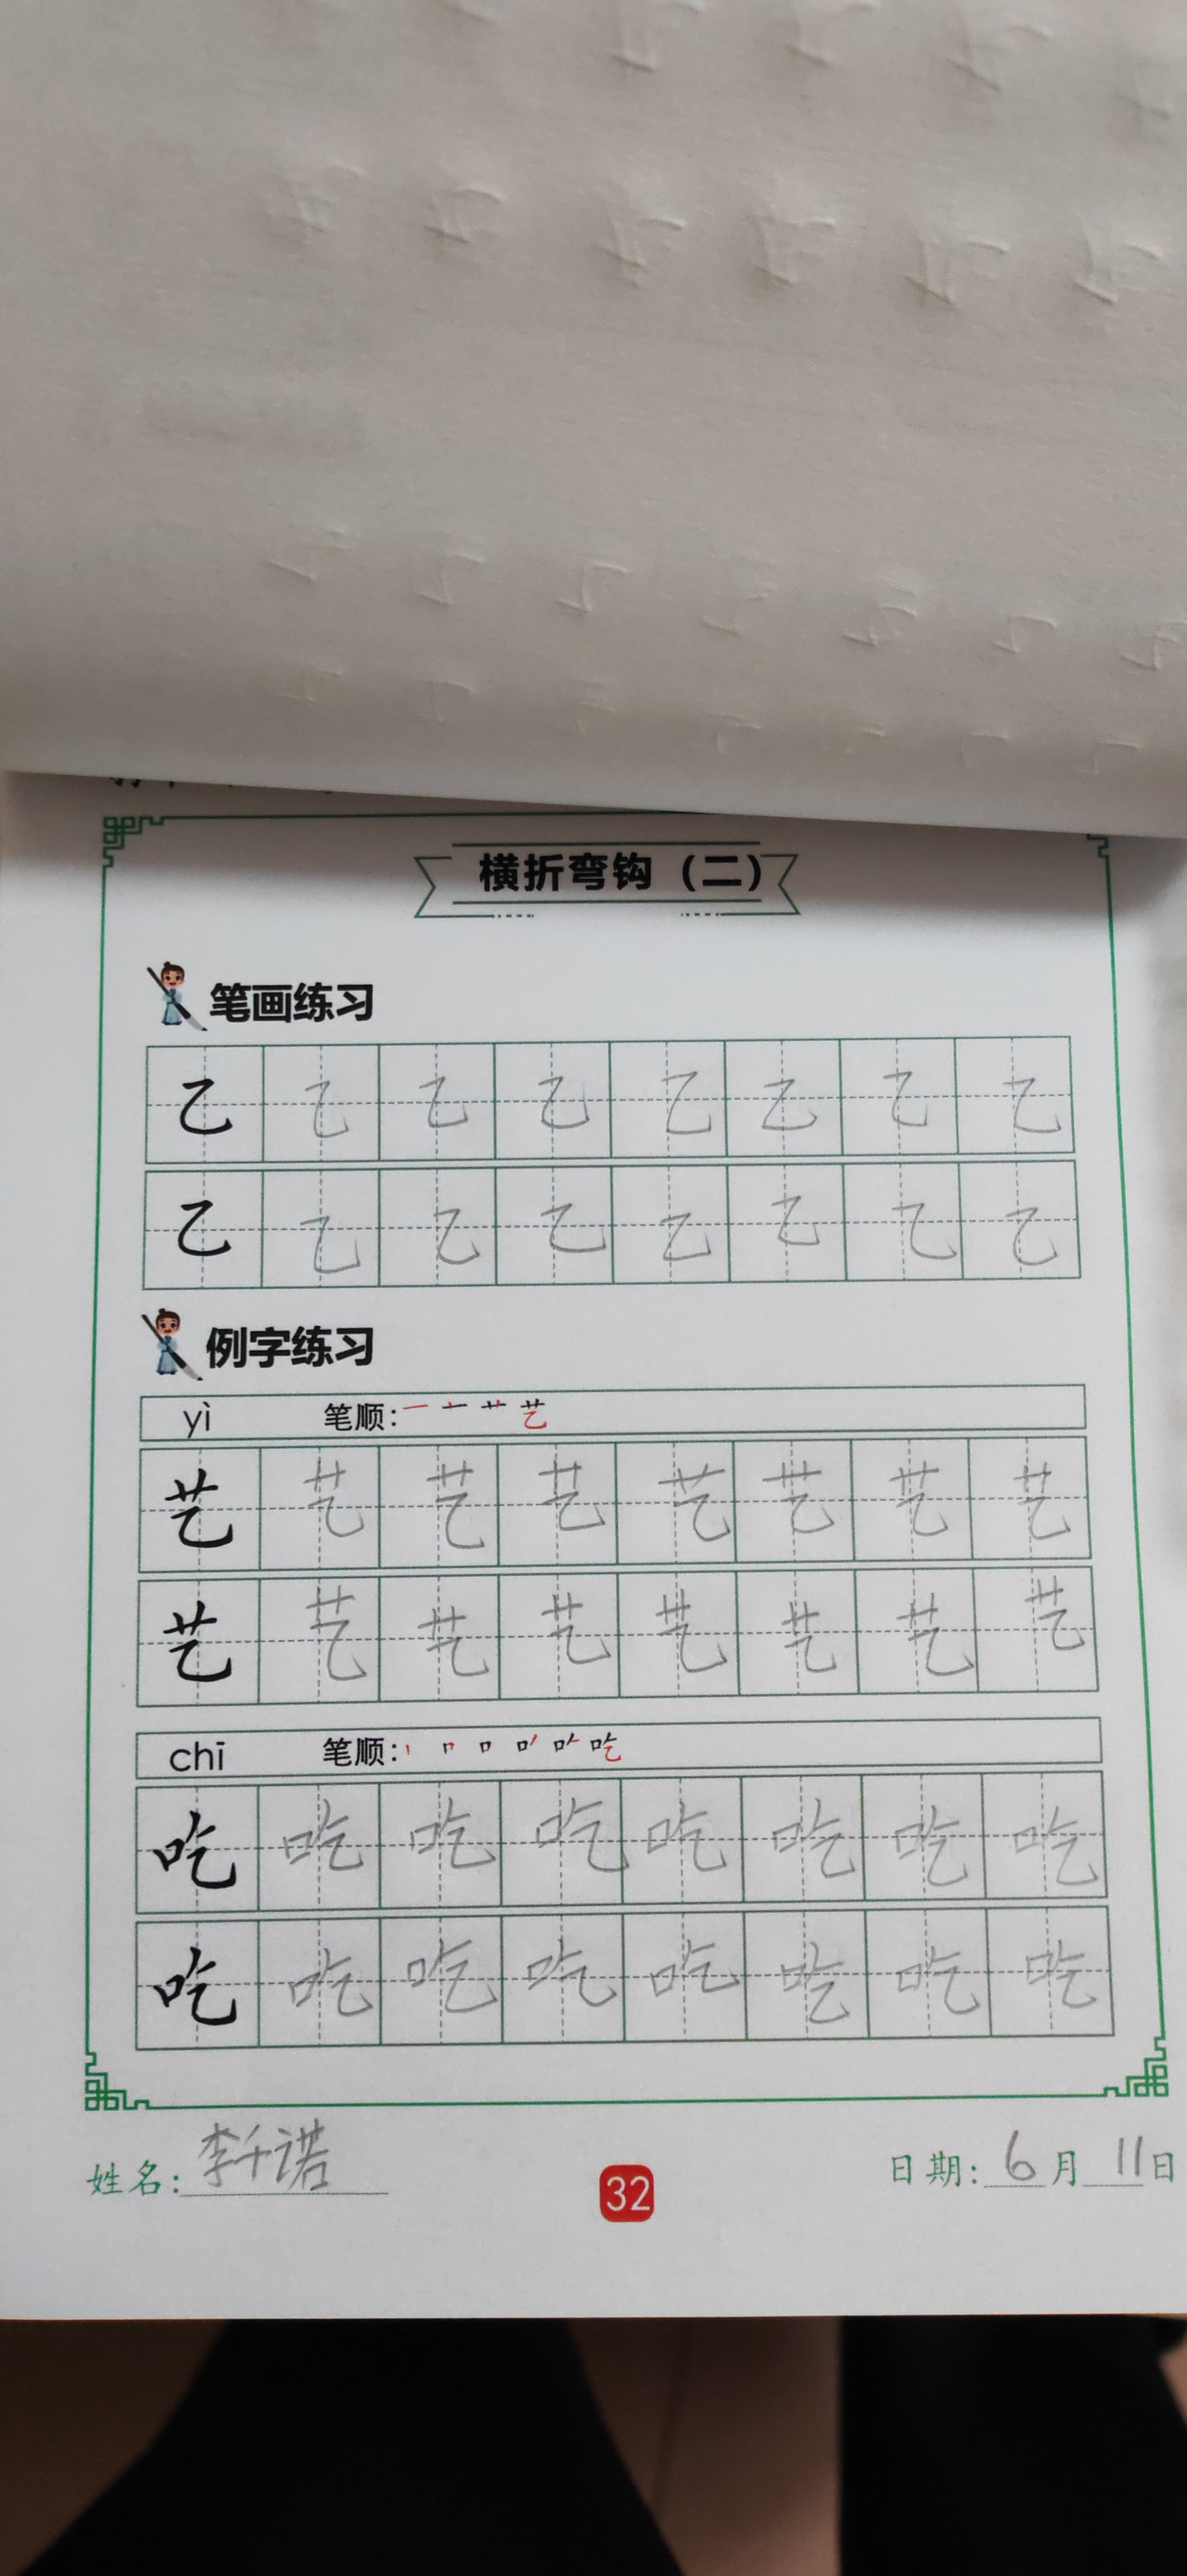 横折弯钩（二）
笔画练习
乙 乙 乙 乙 乙 乙 乙 乙
乙 乙 乙 乙 乙 乙 乙 乙
例字练习
yì 笔顺：一 十 艹 艺
艺 艺 艺 艺 艺 艺 艺 艺
艺 艺 艺 艺 艺 艺 艺 艺
chī 笔顺：丨 𠃍 口 吃
吃 吃 吃 吃 吃 吃 吃 吃
吃 吃 吃 吃 吃 吃 吃 吃
姓名：李千诺 32 日期：6月11日